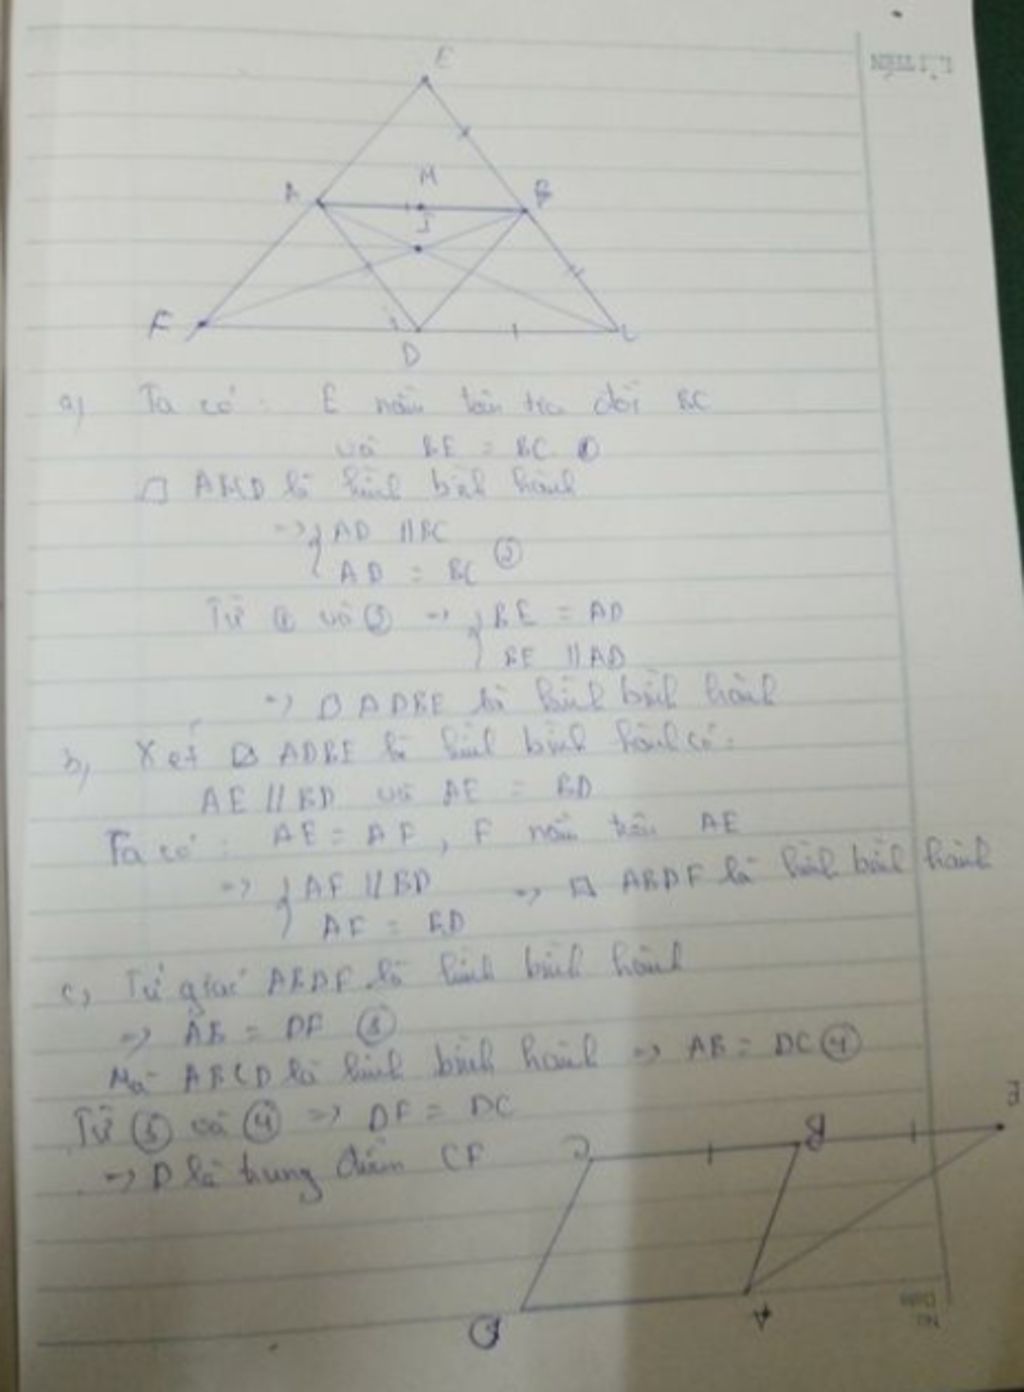 E
A
M
B
I
F
D
C
a) Ta có: E nằm trên tia đối BC
và BE = BC ①
□ ABCD là hình bình hành
=> { AD // BC
AD = BC ②
Từ ① và ② => { BE = AD
BE // AD
=> □ ADBE là hình bình hành
b) Xét □ ADBE là hình bình hành có:
AE // BD và AE = BD
Ta có: AE = AF, F nằm trên AE
=> { AF // BD => □ ABDF là hình bình hành
AF = BD
c) Tứ giác ABDF là hình bình hành
=> AB = DF ③
Mà ABCD là hình bình hành => AB = DC ④
Từ ③ và ④ => DF = DC
=> D là trung điểm CF
E
B
C
A
D
No.
Date